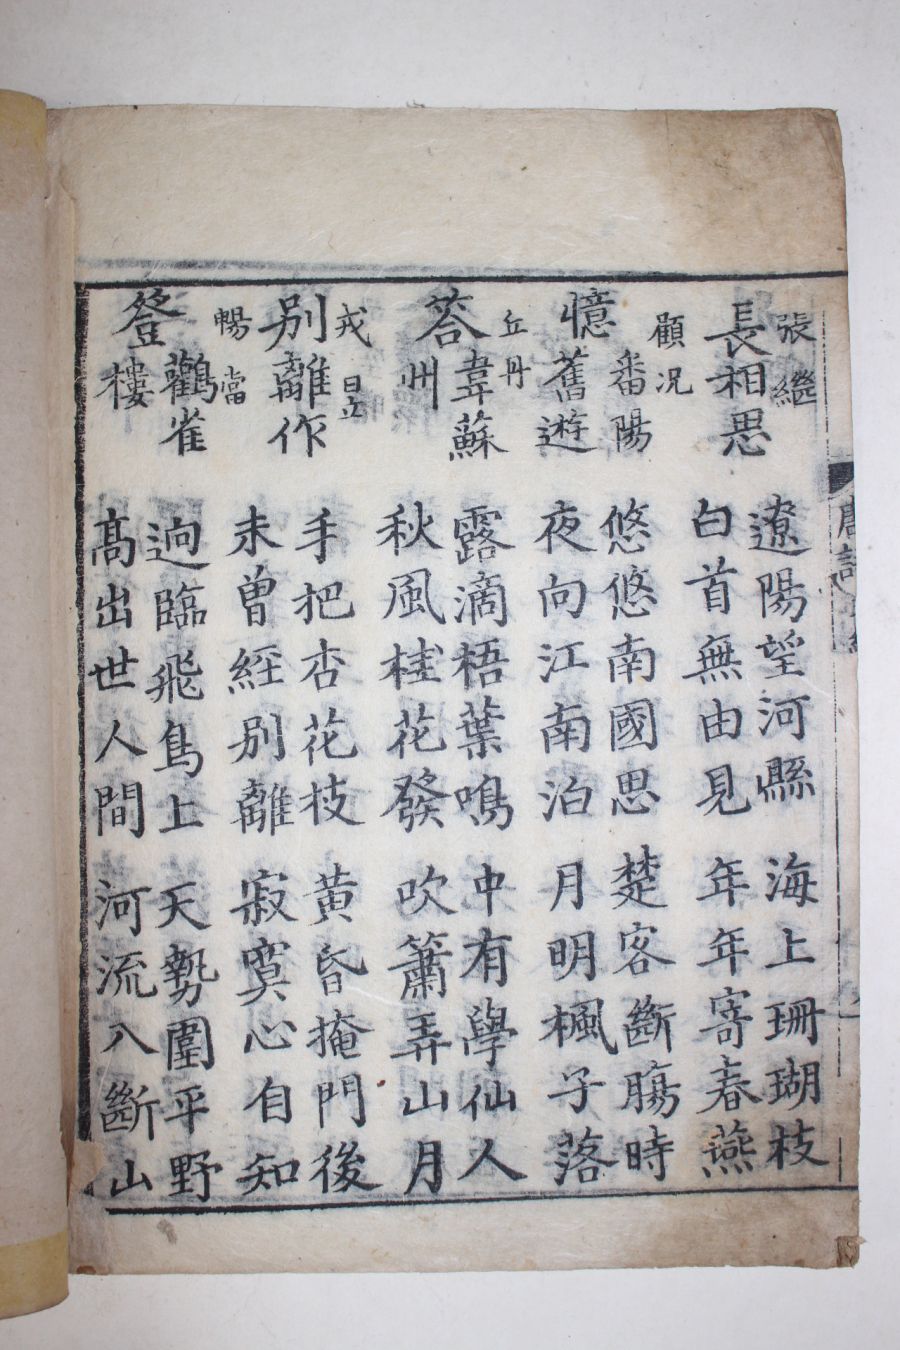 張繼
長相思
遼陽望河縣 海上珊瑚枝
白首無由見 年年寄春燕
顧况
憶番陽舊遊
悠悠南國思 楚客斷腸時
夜向江南泊 月明楓子落
丘丹
答韋蘇州
露滴梧葉鳴 中有學仙人
秋風桂花發 吹簫弄山月
戎昱
別離作
手把杏花枝 黃昏掩門後
未曾經別離 寂寞心自知
暢當
登觀雀樓
逈臨飛鳥上 天勢圍平野
高出世人間 河流入斷山